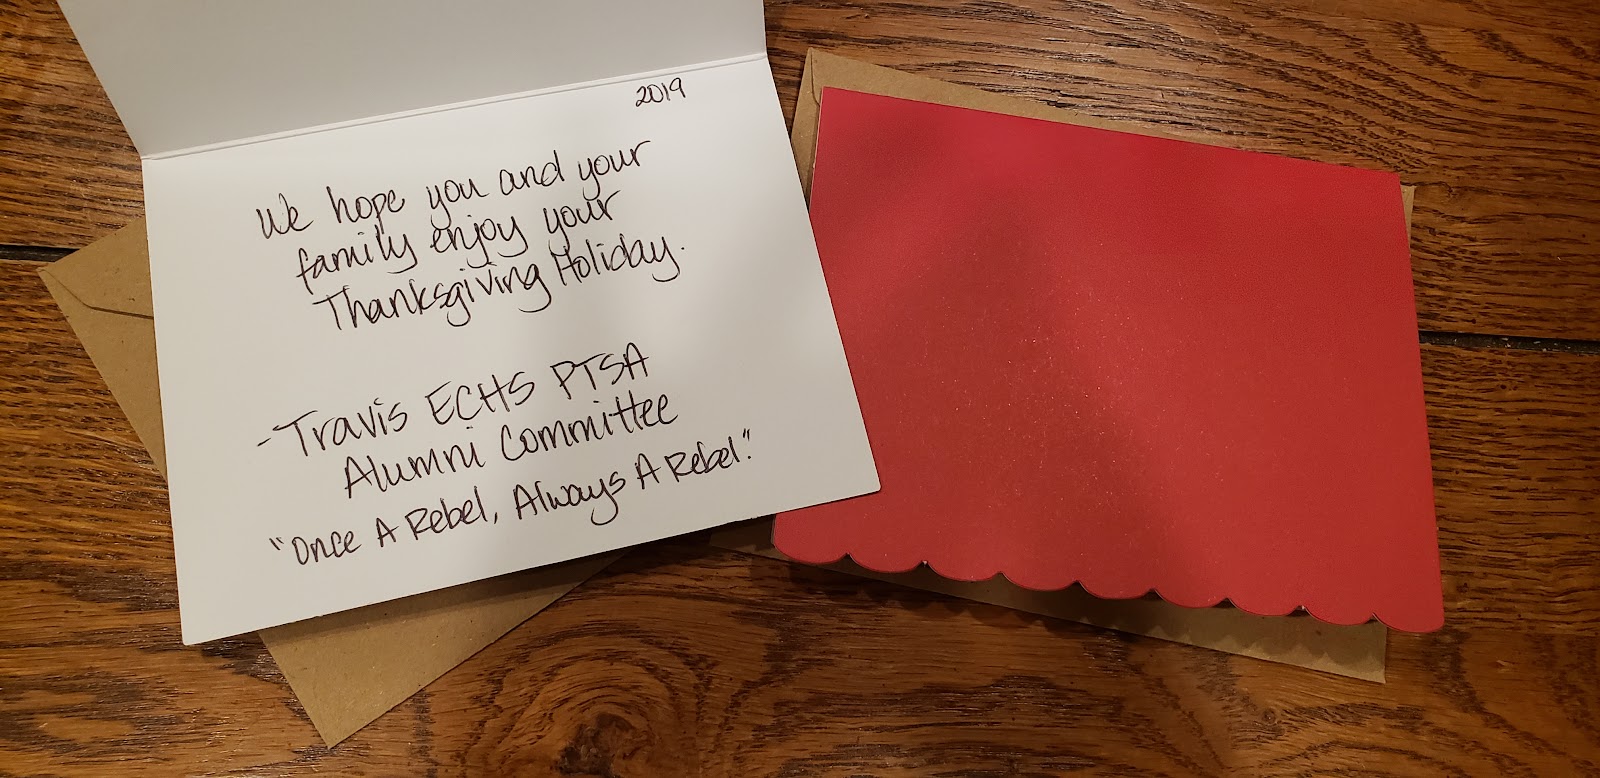 2019
We hope you and your
family enjoy your
Thanksgiving Holiday.
-Travis ECHS PTSA
Alumni Committee
"Once A Rebel, Always A Rebel."